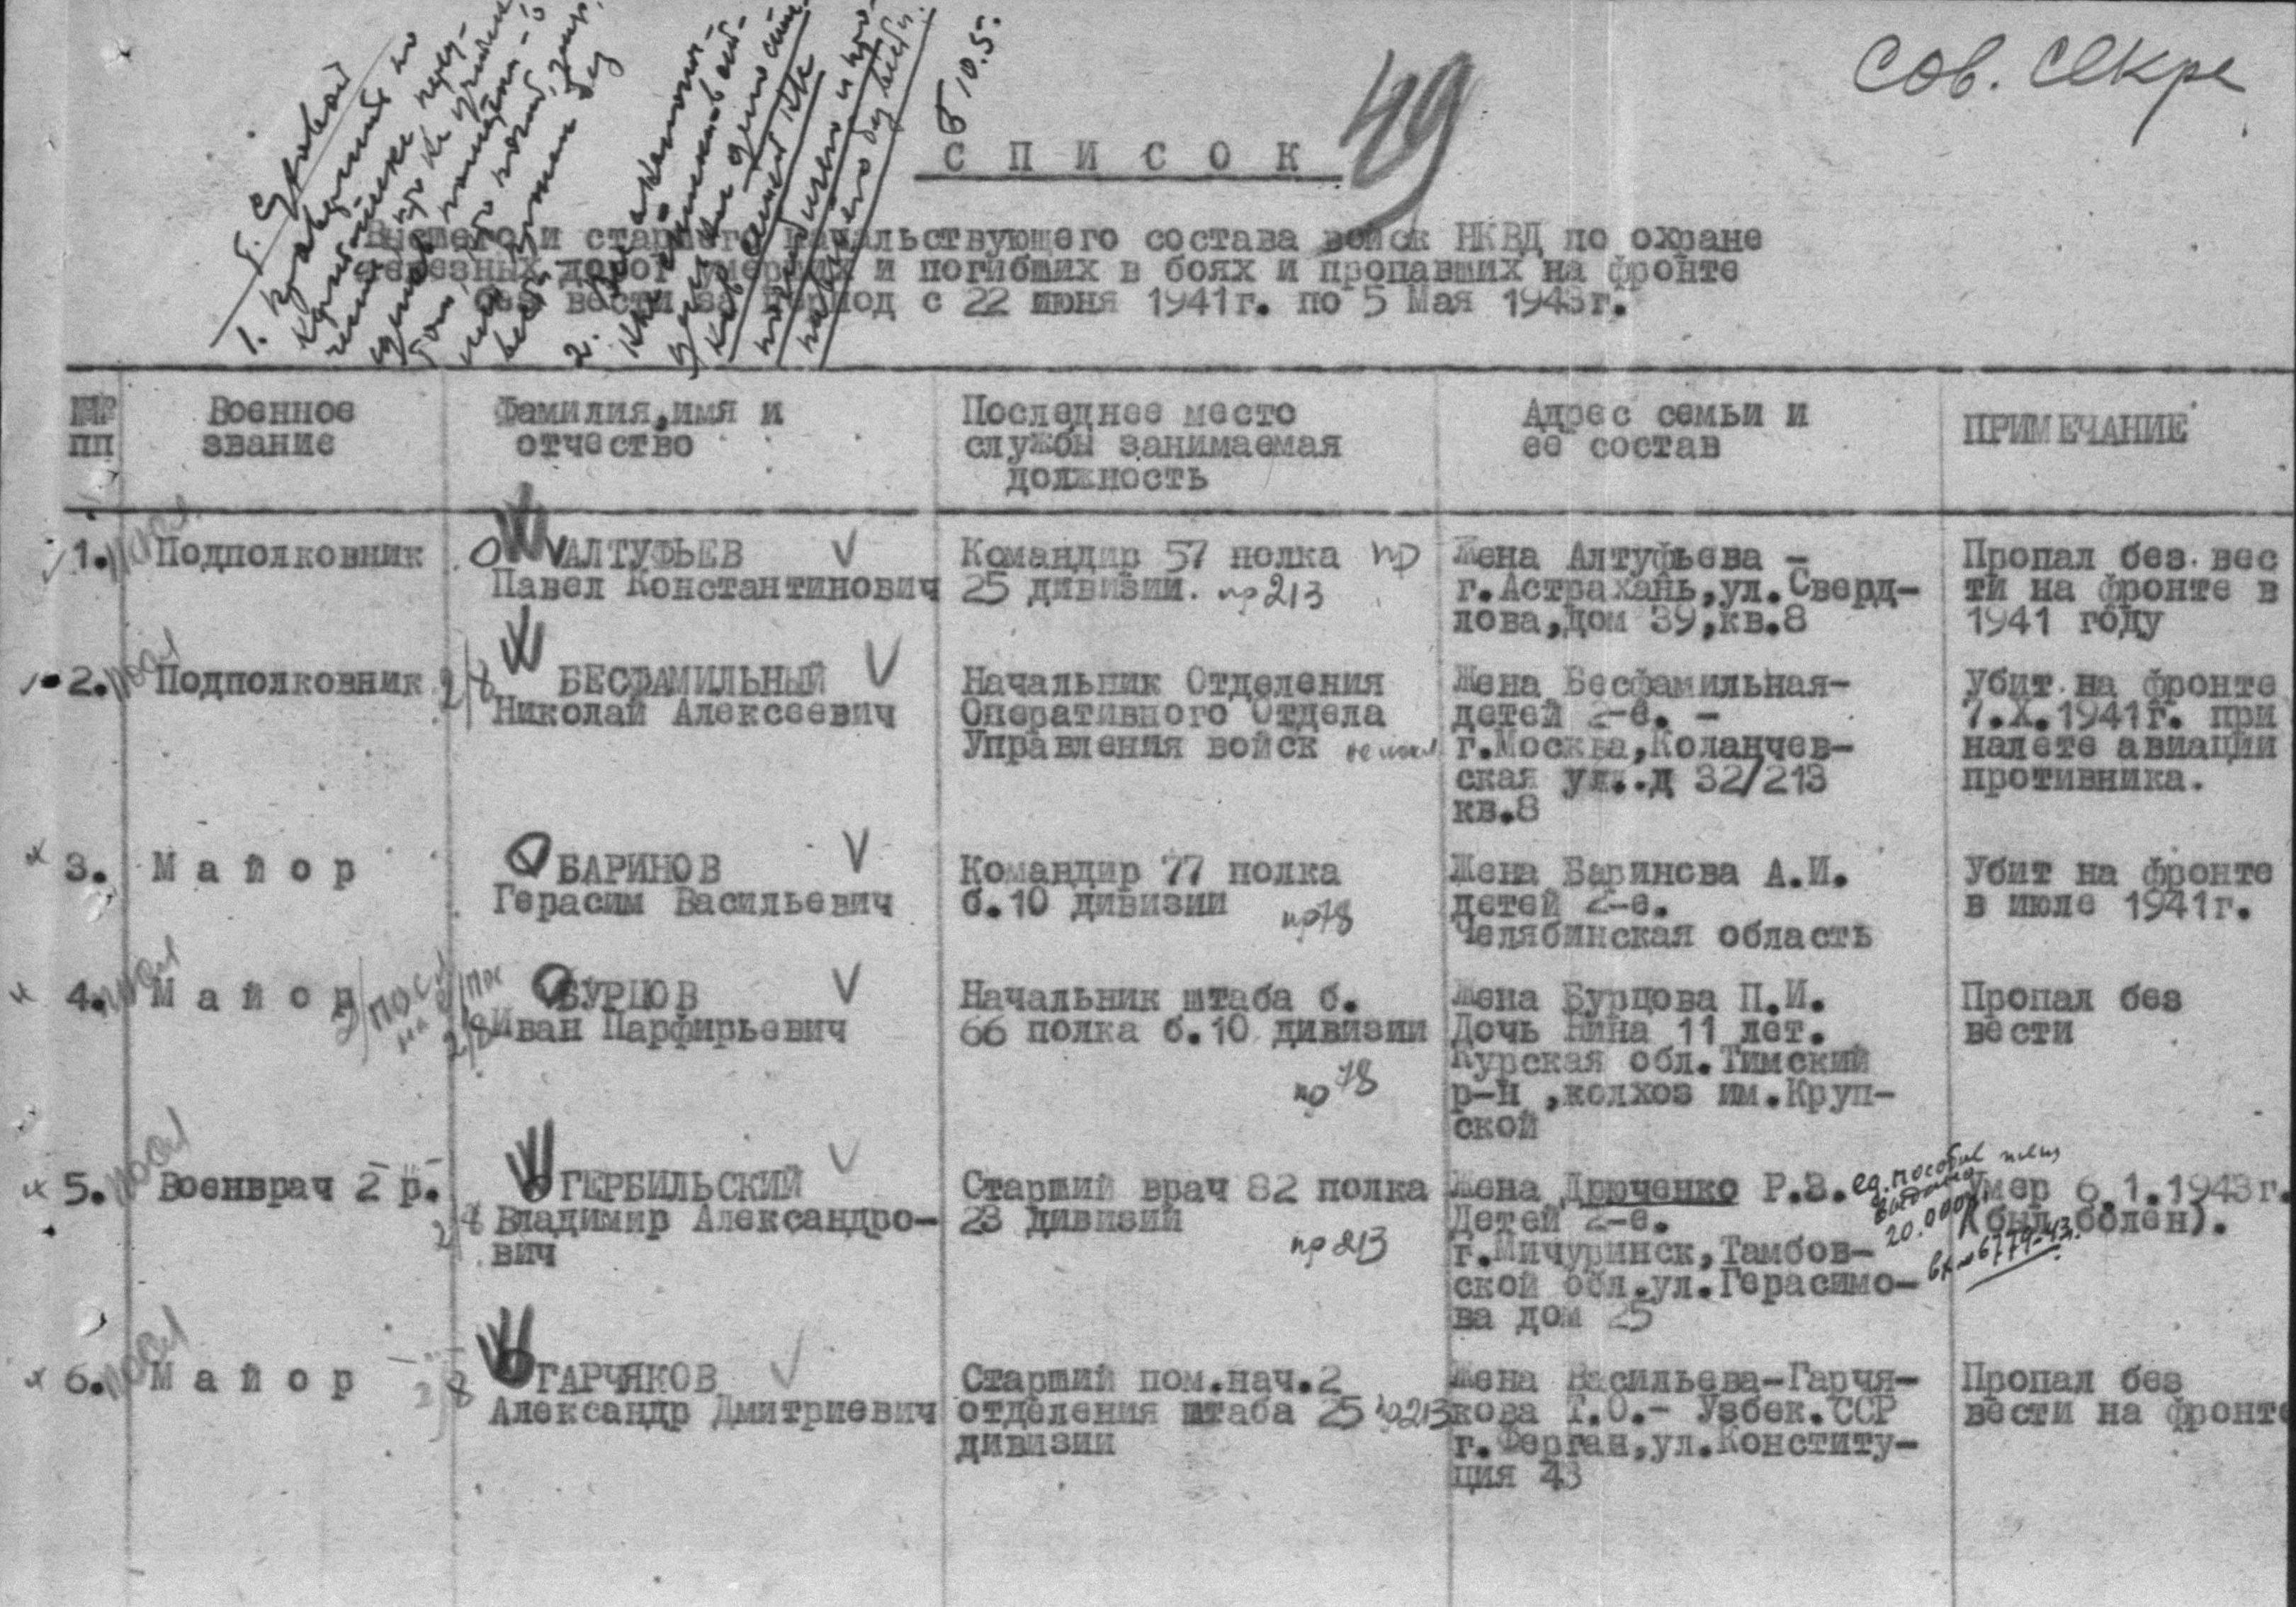 Сов. секре
49
10.5.
С П И С О К
Высшего и старшего начальствующего состава войск НКВД по охране
железных дорог умерших и погибших в боях и пропавших на фронте
без вести за период с 22 июня 1941г. по 5 Мая 1943г.
№№ пп
Военное звание
Фамилия,имя и отчество
Последнее место службы занимаемая должность
Адрес семьи и ее состав
ПРИМЕЧАНИЕ
1.
Подполковник
АЛТУФЬЕВ
Павел Константинович
Командир 57 полка
25 дивизии. пр 213
Жена Алтуфьева –
г.Астрахань,ул.Сверд-
лова,дом 39,кв.8
Пропал без вес
ти на фронте в
1941 году
2.
Подполковник
2/8
БЕСФАМИЛЬНЫЙ
Николай Алексеевич
Начальник Отделения
Оперативного Отдела
Управления войск
Жена Бесфамильная-
детей 2-е. –
г.Москва,Коланчев-
ская ул..д 32/213
кв.8
Убит на фронте
7.X.1941г. при
налете авиации
противника.
3.
М а й о р
БАРИНОВ
Герасим Васильевич
Командир 77 полка
б.10 дивизии
пр78
Жена Баринова А.И.
детей 2-е.
Челябинская область
Убит на фронте
в июле 1941г.
4.
М а й о р
2/8
БУРЦОВ
Иван Парфирьевич
Начальник штаба б.
66 полка б.10 дивизии
пр 78
Жена Бурцова П.И.
Дочь Нина 11 лет.
Курская обл.Тимский
р-н ,колхоз им.Круп-
ской
Пропал без
вести
5.
Военврач 2 р.
2/8
ГЕРБИЛЬСКИЙ
Владимир Александро-
вич
Старший врач 82 полка
23 дивизии
пр 213
Жена Дрюченко Р.З.
Детей 2-е.
г.Мичуринск,Тамбов-
ской обл.ул.Герасимо-
ва дом 25
ед. пособие
выдано
20.000
вх № 6779-43.
Умер 6.1.1943г.
(был болен).
6.
М а й о р
2/8
ГАРЧЯКОВ
Александр Дмитриевич
Старший пом.нач.2
отделения штаба 25 пр213
дивизии
Жена Васильева-Гарчя-
кова Т.О.- Узбек.ССР
г.Ферган,ул.Конститу-
ция 43
Пропал без
вести на фронте